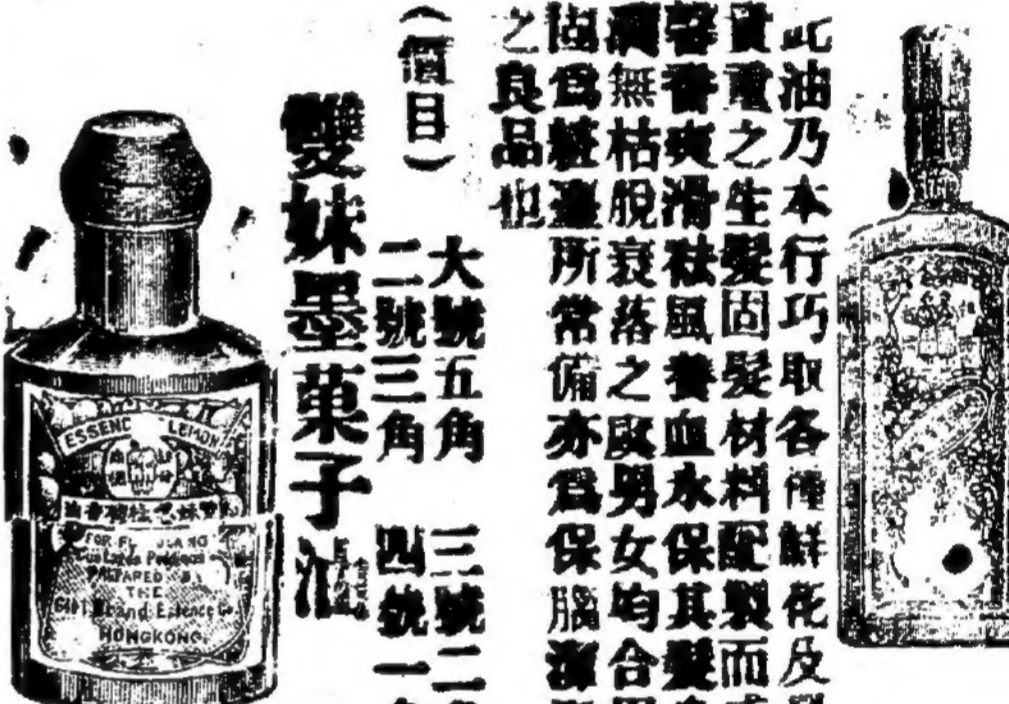 此油乃本行巧取各種鮮花及
貴重之生髮固髮材料配製而
馨香爽滑祛風養血永保其髮
潤無枯脫衰落之虞男女均合
固爲粧臺所常備亦爲保腦潔
之良品也
(價目)
大號五角 三號二
二號三角 四號一
雙妹墨菓子油
ESSENC LEMON
PREPARED BY
THE
Girl Brand Essence Co.
HONGKONG.